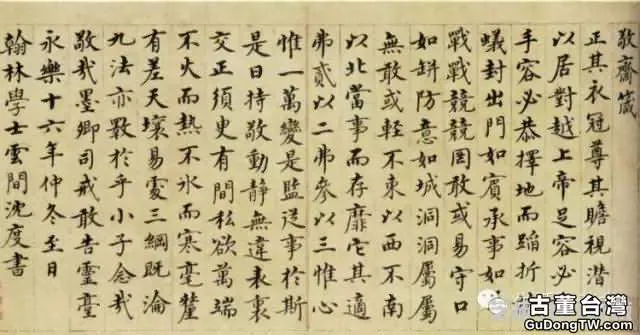 敬齋箴
正其衣冠尊其瞻視潛
以居對越上帝足容必
手容必恭擇地而蹈折
蟻封出門如賓承事如
戰戰兢兢罔敢或易守口
如缾防意如城洞洞屬屬
無敢或輕不東以西不南
以北當事而存靡它其適
弗貳以二弗參以三惟心
惟一萬變是監從事於斯
是曰持敬動靜無違表裏
交正須臾有間私欲萬端
不火而熱不冰而寒毫釐
有差天壤易處三綱既淪
九法亦斁於乎小子念哉
敬哉墨卿司戒敢告靈臺
永樂十六年仲冬至日
翰林學士雲間沈度書
古董台灣
GuDongTW.com